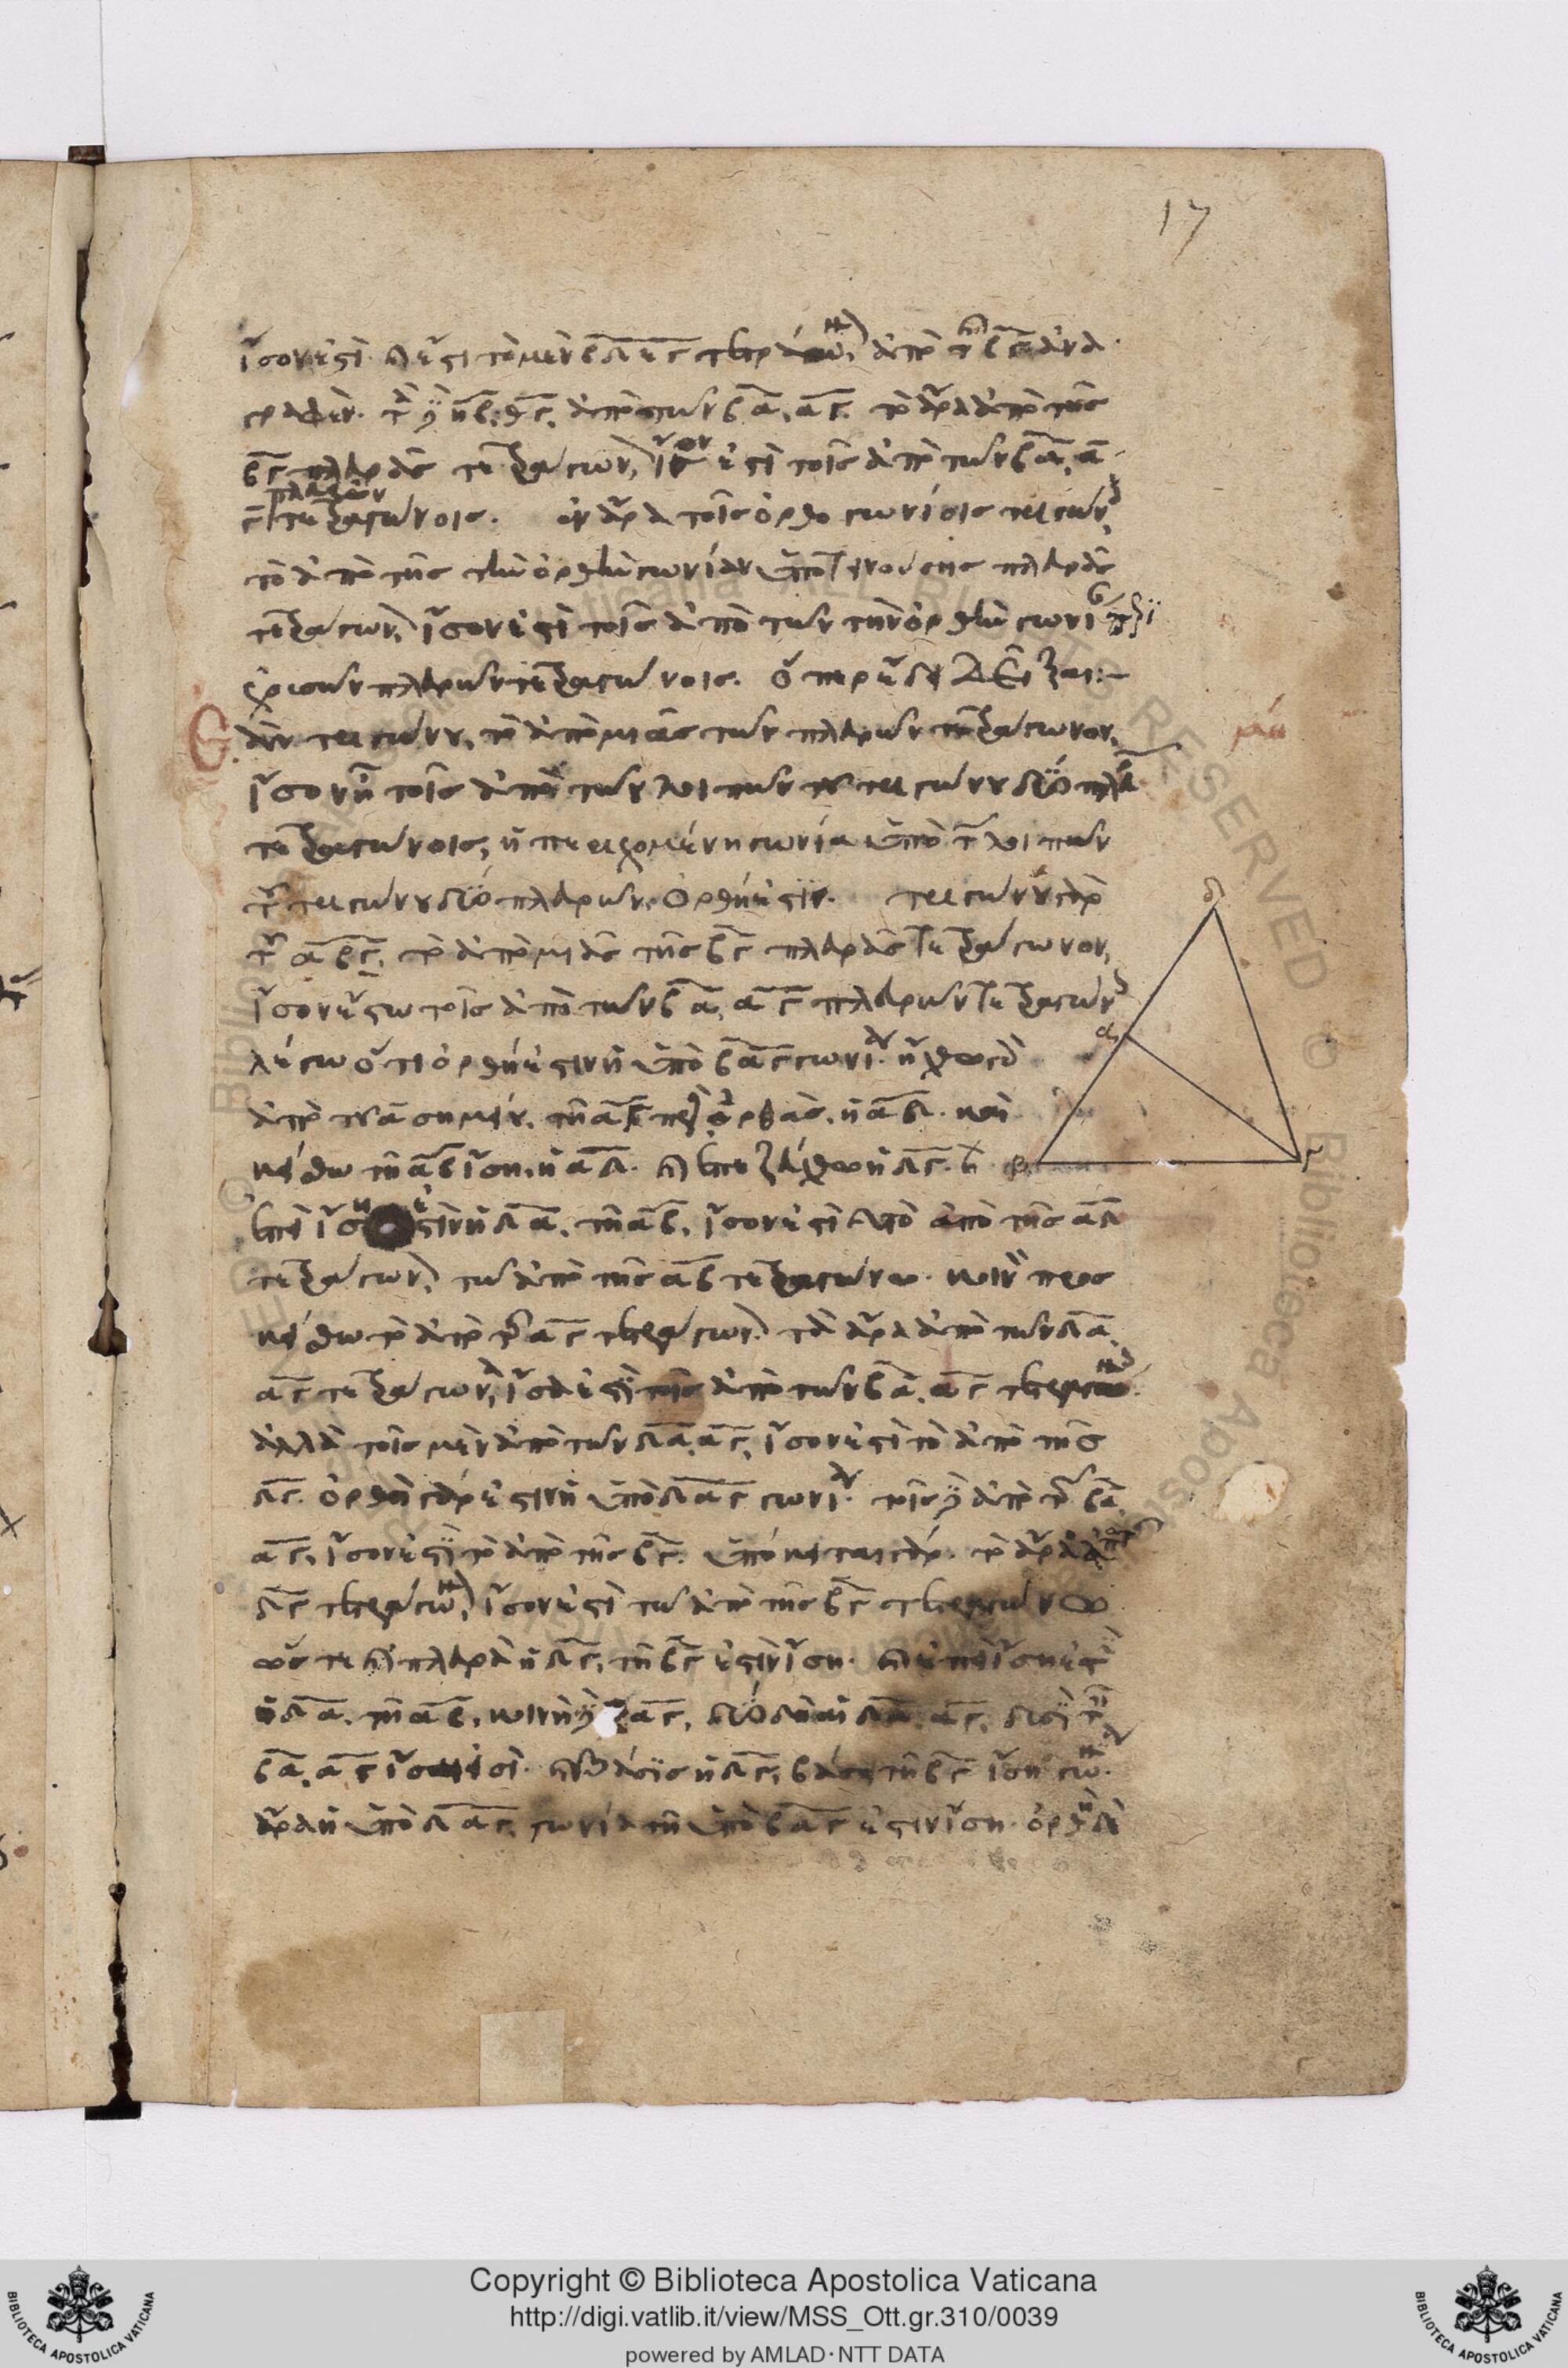 17
ἴσον ἐστί. καὶ ἔστι τὸ μὲν βδεγ τετράγωνον, ἀπὸ τῆς βγ ἀνα
γραφέν. τὰ δὲ ηβ, θγ, ἀπὸ τῶν βα, αγ. τὸ ἄρα ἀπὸ τῆς
βγ πλευρᾶς τετράγωνον, ἴσον ἐστὶ τοῖς ἀπὸ τῶν βα, α
γ πλευρῶν τετραγώνοις. ἐν ἄρα τοῖς ὀρθογωνίοις τριγώνοις,
τὸ ἀπὸ τῆς τὴν ὀρθὴν γωνίαν ὑποτεινούσης πλευρᾶς
τετράγωνον, ἴσον ἐστὶ τοῖς ἀπὸ τῶν τὴν ὀρθὴν γωνίαν περι
εχουσῶν πλευρῶν τετραγώνοις. ὅπερ ἔδει δεῖξαι:–
Ἐὰν τριγώνου, τὸ ἀπὸ μιᾶς τῶν πλευρῶν τετράγωνον,
ἴσον ᾖ τοῖς ἀπὸ τῶν λοιπῶν τοῦ τριγώνου δύο πλευρῶν
τετραγώνοις, ἡ περιεχομένη γωνία ὑπὸ τῶν λοιπῶν
τοῦ τριγώνου δύο πλευρῶν, ὀρθή ἐστιν. τριγώνου γὰρ
τοῦ αβγ, τὸ ἀπὸ μιᾶς τῆς βγ πλευρᾶς τετράγωνον,
ἴσον ἔστω τοῖς ἀπὸ τῶν βα, αγ πλευρῶν τετραγώνοις
λέγω ὅτι ὀρθή ἐστιν ἡ ὑπὸ βαγ γωνία. ἤχθω γὰρ
ἀπὸ τοῦ α σημείου, τῇ αγ πρὸς ὀρθὰς, ἡ αδ. καὶ
κείσθω τῇ αβ ἴση, ἡ αδ. καὶ ἐπεζεύχθω ἡ δγ.
ἐπεὶ ἴση ἐστὶν ἡ δα, τῇ αβ, ἴσον ἐστὶ καὶ τὸ ἀπὸ τῆς αδ
τετράγωνον, τῶ ἀπὸ τῆς αβ τετραγώνω. κοινὸν προσ
κείσθω τὸ ἀπὸ τῆς αγ τετράγωνον. τὰ ἄρα ἀπὸ τῶν δα,
αγ τετράγωνα, ἴσα ἐστὶ τοῖς ἀπὸ τῶν βα, αγ τετραγώνοις.
ἀλλὰ τοῖς μὲν ἀπὸ τῶν δα, αγ, ἴσον ἐστὶ τὸ ἀπὸ τῆς
δγ. ὀρθὴ γάρ ἐστιν ἡ ὑπὸ δαγ γωνία. τοῖς δὲ ἀπὸ τῶν βα,
αγ, ἴσον ἐστὶ τὸ ἀπὸ τῆς βγ. ὑπόκειται γάρ. τὸ ἄρα ἀπὸ
δγ τετράγωνον, ἴσον ἐστὶ τῶ ἀπὸ τῆς βγ τετραγώνω
ὥστε καὶ πλευρὰ ἡ δγ, τῇ βγ ἐστὶν ἴση. καὶ ἐπεὶ ἴση ἐστὶ
ἡ δα, τῇ αβ, κοινὴ δὲ ἡ αγ, δύο δὴ αἱ δα, αγ, δυσὶ ταῖς
βα, αγ ἴσαι εἰσί. καὶ βάσις ἡ δγ, βάσει τῇ βγ ἴση. γωνία
ἄρα ἡ ὑπὸ δαγ, γωνία τῇ ὑπὸ βαγ ἐστὶν ἴση. ὀρθὴ δὲ
δ
α
β
γ
Copyright © Biblioteca Apostolica Vaticana
http://digi.vatlib.it/view/MSS_Ott.gr.310/0039
powered by AMLAD·NTT DATA